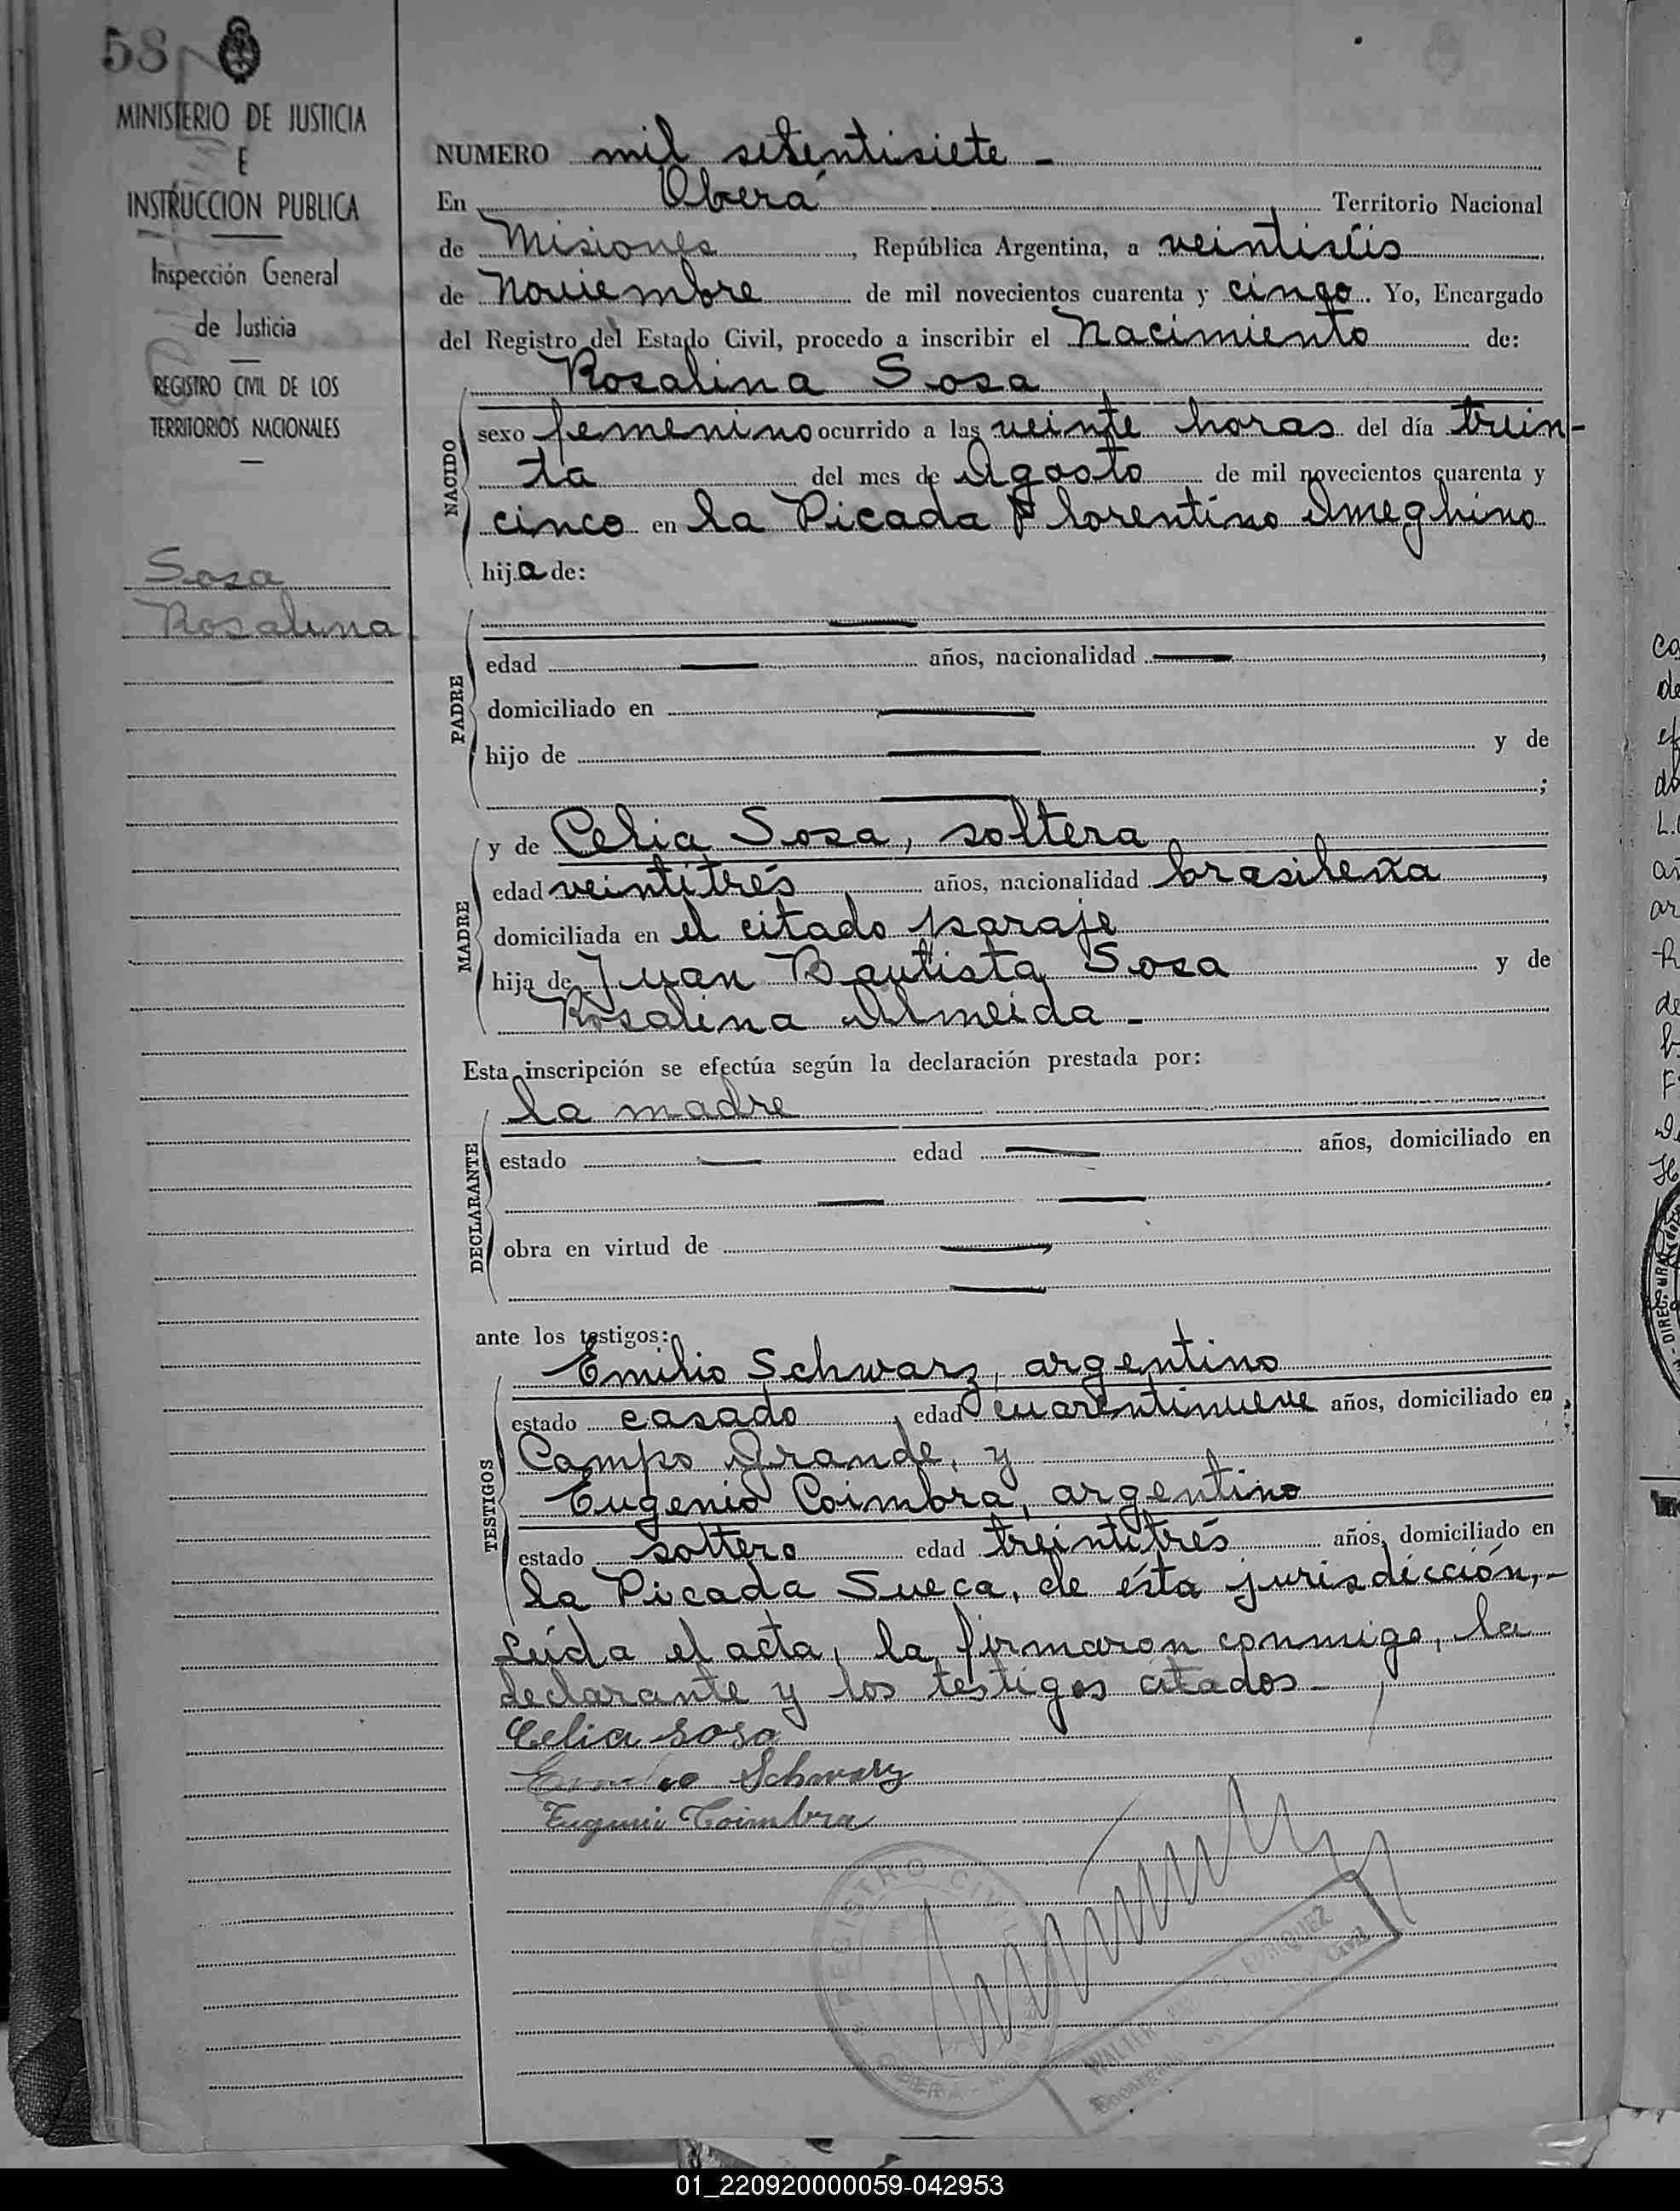 58
MINISTERIO DE JUSTICIA
E
INSTRUCCION PUBLICA
Inspección General
de Justicia
REGISTRO CIVIL DE LOS
TERRITORIOS NACIONALES
Sosa
Rosalina
NUMERO mil setentisiete -
En Oberá Territorio Nacional
de Misiones, República Argentina, a veintiséis
de Noviembre de mil novecientos cuarenta y cinco. Yo, Encargado
del Registro del Estado Civil, procedo a inscribir el Nacimiento de:
Rosalina Sosa
NACIDO
sexo femenino ocurrido a las veinte horas del día trein-
ta del mes de Agosto de mil novecientos cuarenta y
cinco en la Picada Florentino Ameghino
hija de:
PADRE
edad años, nacionalidad ,
domiciliado en
hijo de y de
;
MADRE
y de Celia Sosa, soltera
edad veintitrés años, nacionalidad brasileña,
domiciliada en el citado paraje
hija de Juan Bautista Sosa y de
Rosalina Almeida -
Esta inscripción se efectúa según la declaración prestada por:
DECLARANTE
la madre
estado edad años, domiciliado en
obra en virtud de
ante los testigos:
TESTIGOS
Emilio Schwarz, argentino
estado casado, edad cuarentinueve años, domiciliado en
Campo Grande, y
Eugenio Coimbra, argentino
estado soltero edad treintitrés años, domiciliado en
la Picada Sueca, de ésta jurisdicción,-
Leída el acta, la firmaron conmigo, la
declarante y los testigos citados -
Celia Sosa
Emilio Schwarz
Eugenio Coimbra
REGISTRO CIVIL
WALTER
01_220920000059-042953